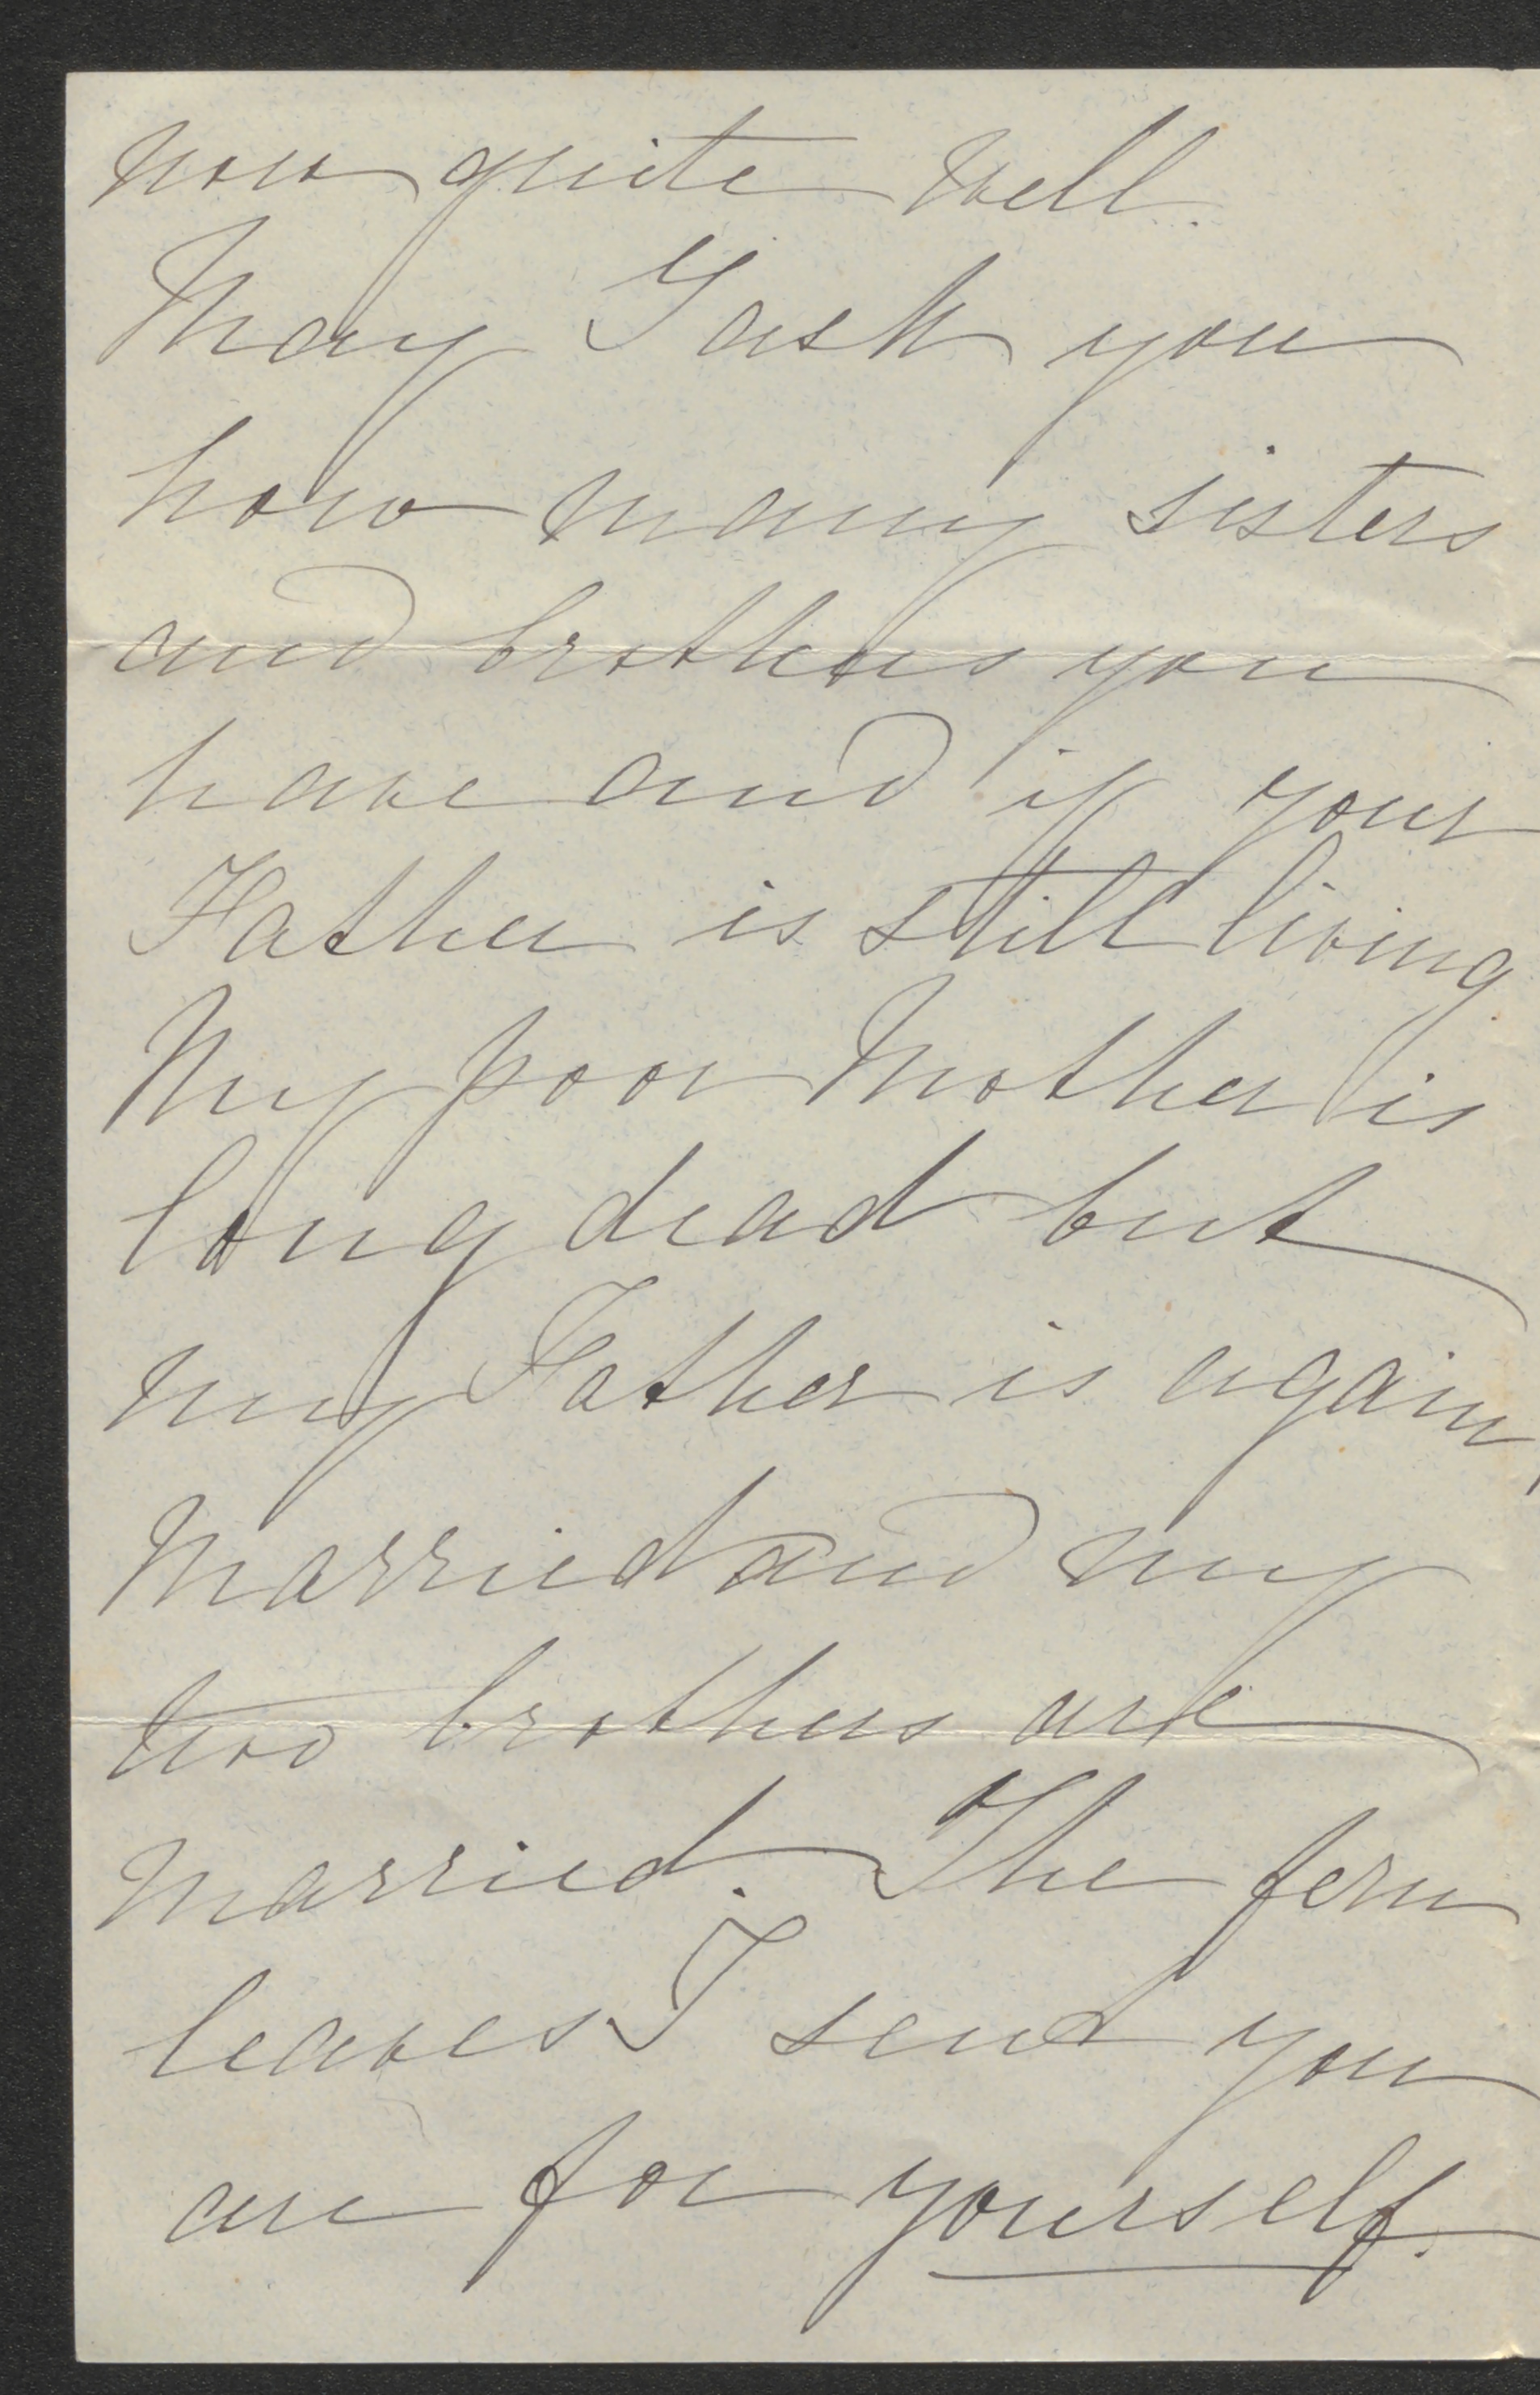 now quite well.
May I ask you
how many sisters
and brothers you
have and if your
Father is still living.
My poor Mother is
long dead but
my Father is again
married and my
two brothers are
married. The fern
leaves I send you
are for yourself.